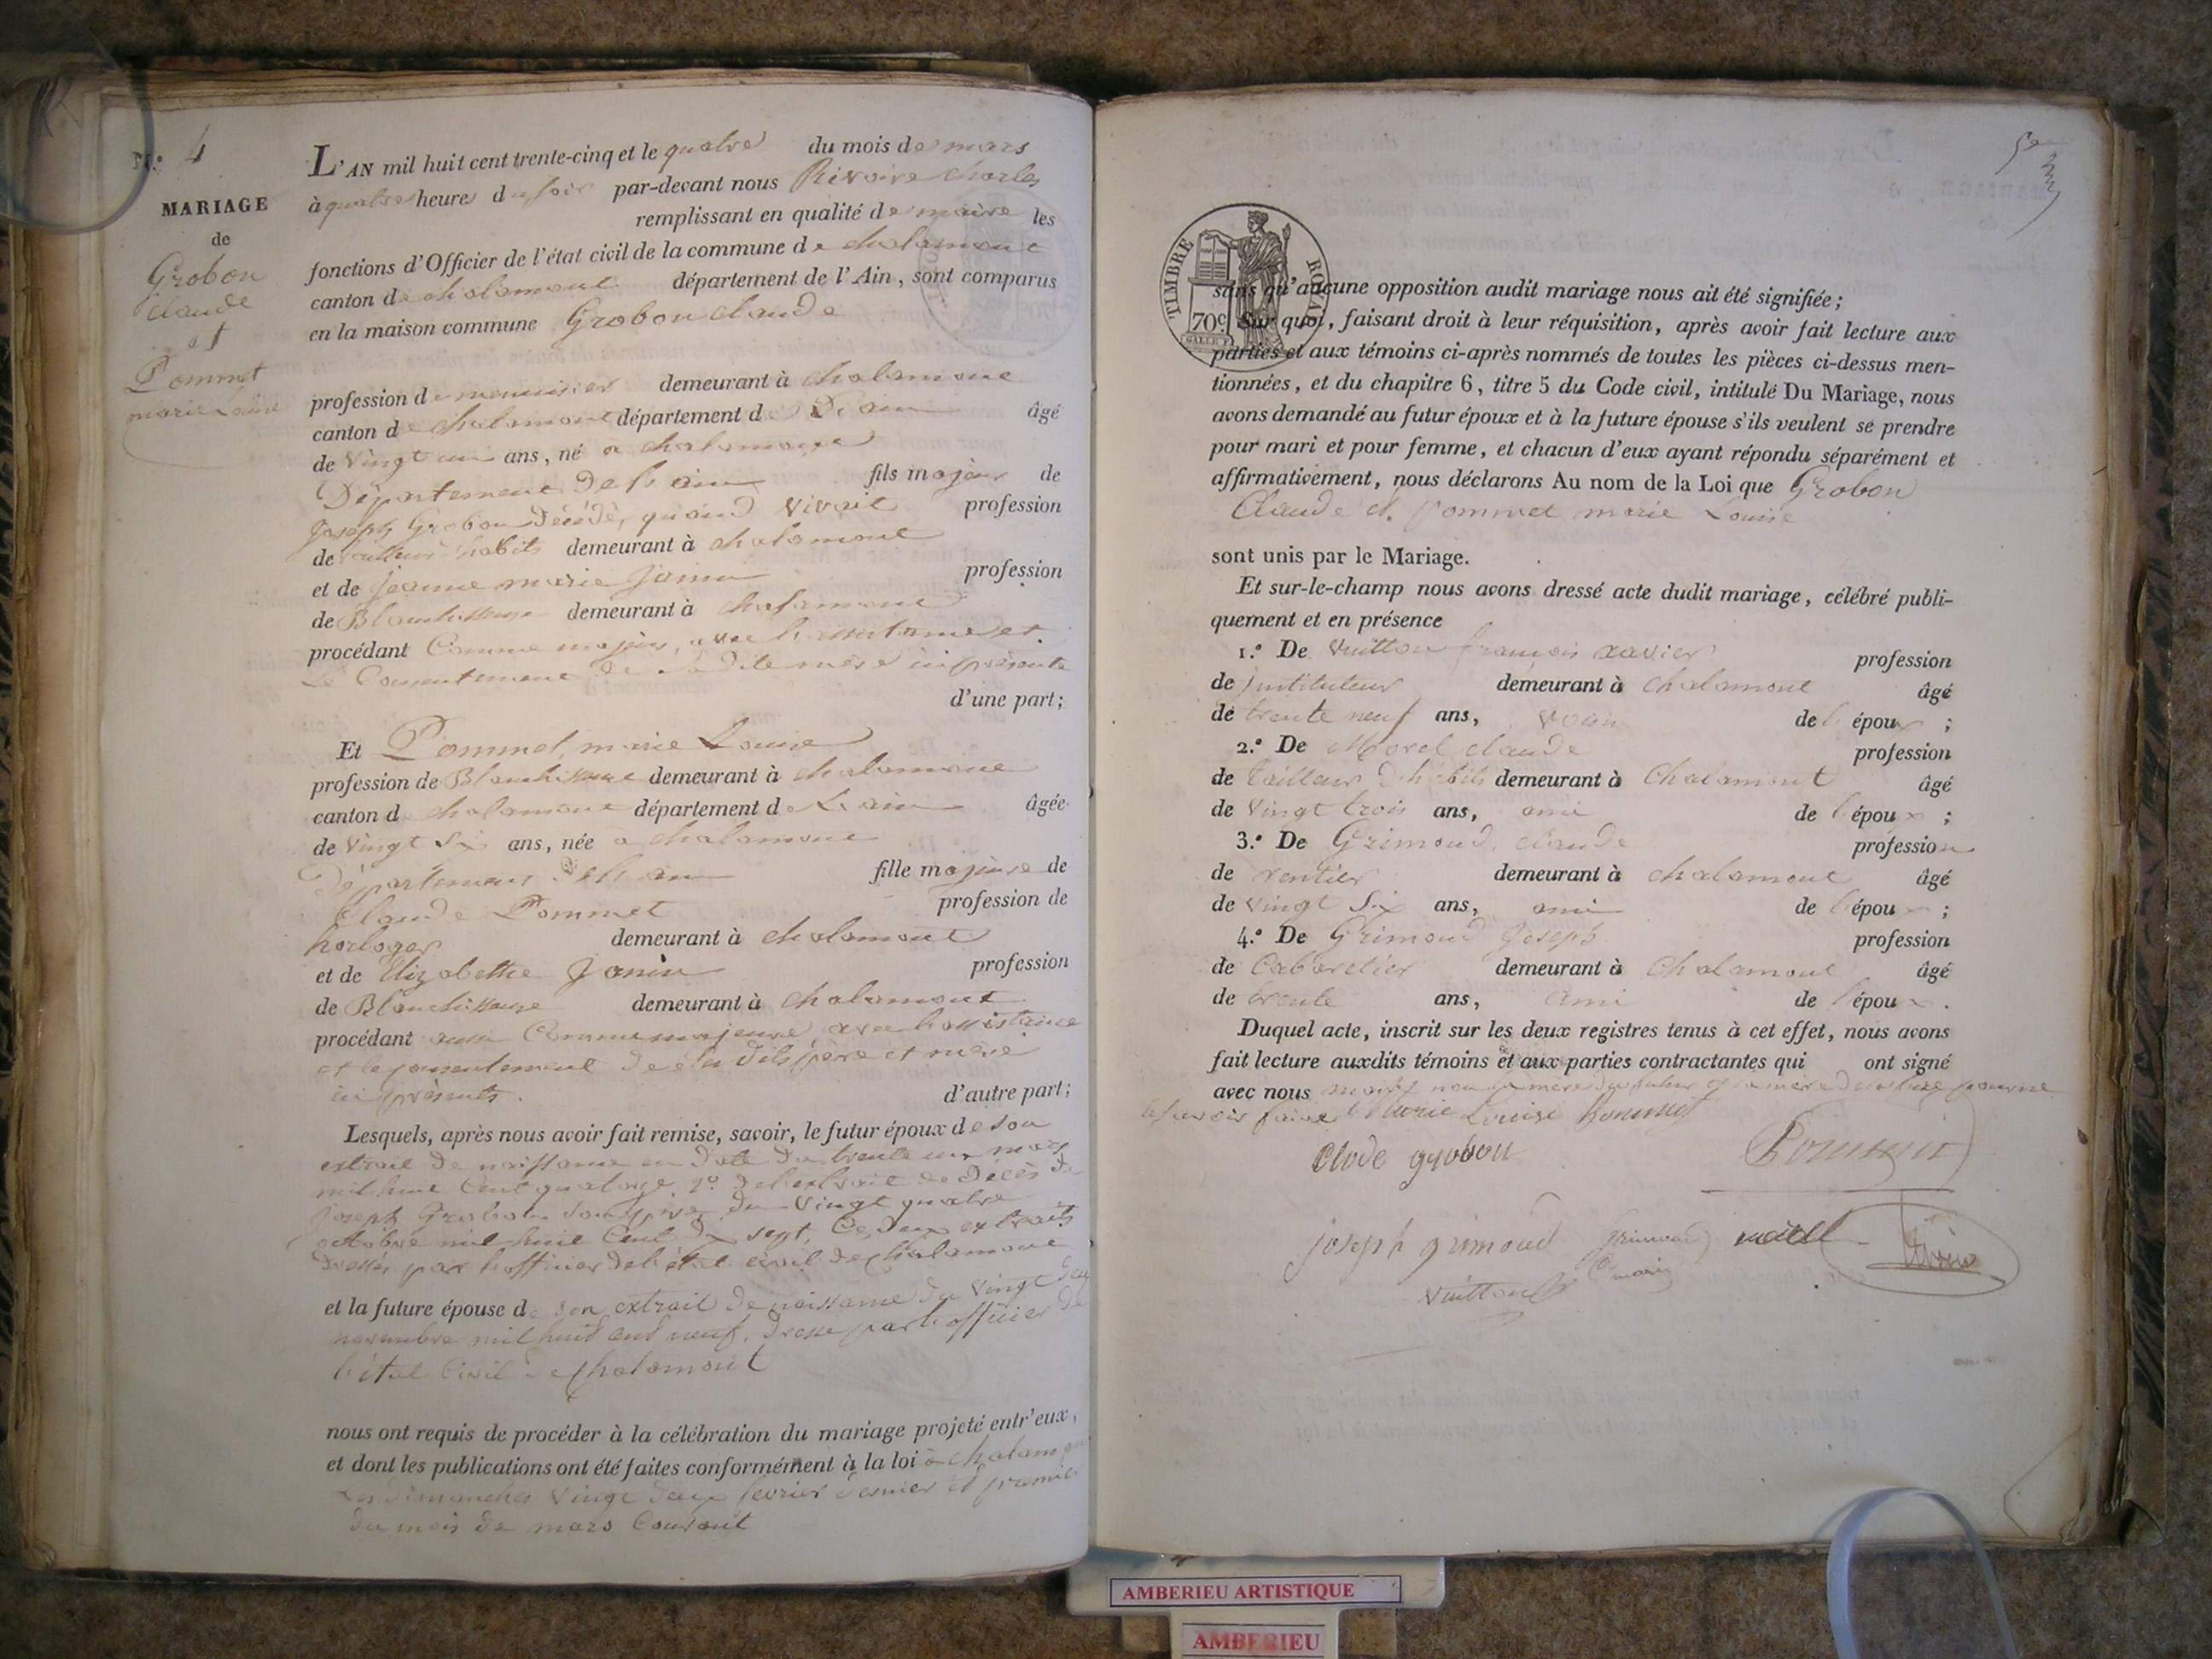 N.º 4
MARIAGE
de
Grobon
Claude
et
Pommet
marie Louise
L'AN mil huit cent trente-cinq et le quatre du mois de mars
à quatre heures du soir par-devant nous Rivoire Charles
remplissant en qualité de maire les
fonctions d'Officier de l'état civil de la commune de chalamont
canton de chalamont département de l'Ain, sont comparus
en la maison commune Grobon Claude
profession de menuisier demeurant à chalamont
canton de chalamont département de L'ain âgé
de vingt un ans, né à chalamont
Département de l'ain fils majeur de
Joseph Grobon décédé, quand vivait profession
de tailleur d'habits demeurant à chalamont
et de jeanne marie Janin profession
de Blanchisseuse demeurant à chalamont
procédant Comme majeur, avec l'assistance et
le Consentement de sa dite mère ici présente
d'une part;
Et Pommet, marie Louise
profession de Blanchisseuse demeurant à chalamont
canton de chalamont département de L'ain âgée
de vingt six ans, née à chalamont
Département de l'ain fille majeure de
Claude Pommet profession de
horloger demeurant à chalamont
et de Elizabethe Janin profession
de Blanchisseuse demeurant à chalamont
procédant aussi Comme majeure avec l'assistance
et le consentement de ses dits père et mère
ici présents. d'autre part;
Lesquels, après nous avoir fait remise, savoir, le futur époux de son
extrait de naissance en date du trente un mars
mil huit Cent quatorze, 2º de l'extrait de décès de
joseph Grobon son père du vingt quatre
octobre mil huit Cent dix sept, Ces deux extraits
dressés par l'officier de l'état civil de Chalamont
et la future épouse de son extrait de naissance du vingt deux
novembre mil huit cent neuf, dressé par l'officier de
l'état Civil de chalamont
nous ont requis de procéder à la célébration du mariage projeté entr'eux,
et dont les publications ont été faites conformément à la loi à chalamont
Les dimanches vingt deux fevrier dernier et premier
du mois de mars Courant
5e
TIMBRE ROYAL
70c
sans qu'aucune opposition audit mariage nous ait été signifiée;
Sur quoi, faisant droit à leur réquisition, après avoir fait lecture aux
parties et aux témoins ci-après nommés de toutes les pièces ci-dessus men-
tionnées, et du chapitre 6, titre 5 du Code civil, intitulé Du Mariage, nous
avons demandé au futur époux et à la future épouse s'ils veulent se prendre
pour mari et pour femme, et chacun d'eux ayant répondu séparément et
affirmativement, nous déclarons Au nom de la Loi que Grobon
Claude et pommet marie Louise
sont unis par le Mariage.
Et sur-le-champ nous avons dressé acte dudit mariage, célébré publi-
quement et en présence
1.º De Vuitton françois xavier profession
de jnstituteur demeurant à chalamont âgé
de trente neuf ans, voisin de l'époux ;
2.º De Morel claude profession
de tailleur d'habits demeurant à Chalamont âgé
de vingt trois ans, ami de l'époux ;
3.º De Grimoud, claude profession
de rentier demeurant à chalamont âgé
de vingt six ans, ami de l'époux ;
4.º De Grimoud Joseph profession
de Cabaretier demeurant à Chalamont âgé
de trente ans, ami de l'époux .
Duquel acte, inscrit sur les deux registres tenus à cet effet, nous avons
fait lecture auxdits témoins et aux parties contractantes qui ont signé
avec nous mais non la mère du futur et la mère de la future pour ne
le savoir faire Marie Louise Pommet
Clode grobon Pommet
joseph grimoud Grimoud
Vuitton
AMBERIEU ARTISTIQUE
AMBERIEU